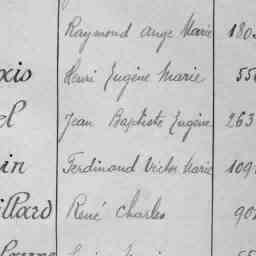 Raymond Ange Marie 180
xis Henri Eugène Marie 55
el Jean Baptiste Eugène 263
in Ferdinand Victor Marie 109
illard René Charles 90